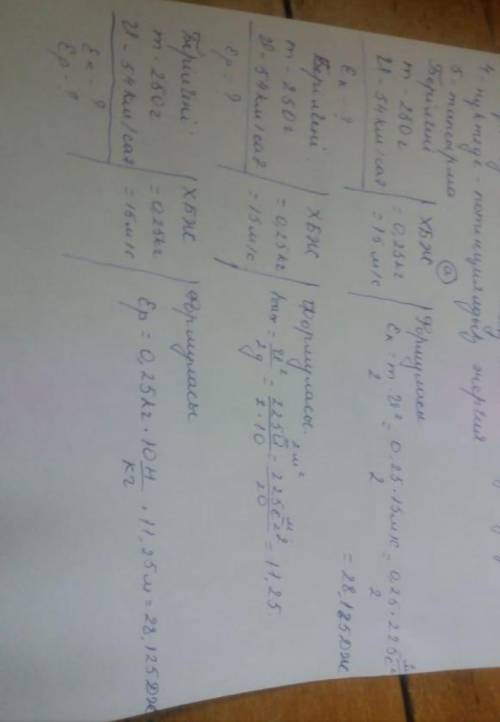 4. нүктеде - потенциялдық энергия
5. тапсырма (а)
Берілгені | ХБЖ | Формуласы
m - 250г | = 0,25кг | Ек = m υ² / 2 = 0.25 · 15м/с / 2 = 0,25 · 225 м/с² / 2
υ - 54км/сағ | = 15м/с | = 28,125Дж
Ек - ?
Берілгені | ХБЖ | Формуласы.
m - 250г | = 0,25кг | hmax = υ² / 2g = 225 м²/с² / 2·10 = 225 м/с² / 20 = 11,25
υ - 54км/сағ | = 15м/с
Ер - ?
Берілгені | ХБЖ | Формуласы
m - 250г | = 0,25кг | Ер = 0,25кг · 10 Н/кг · 11,25м = 28,125Дж
υ - 54км/сағ | = 15м/с
Ек - ?
Ер - ?